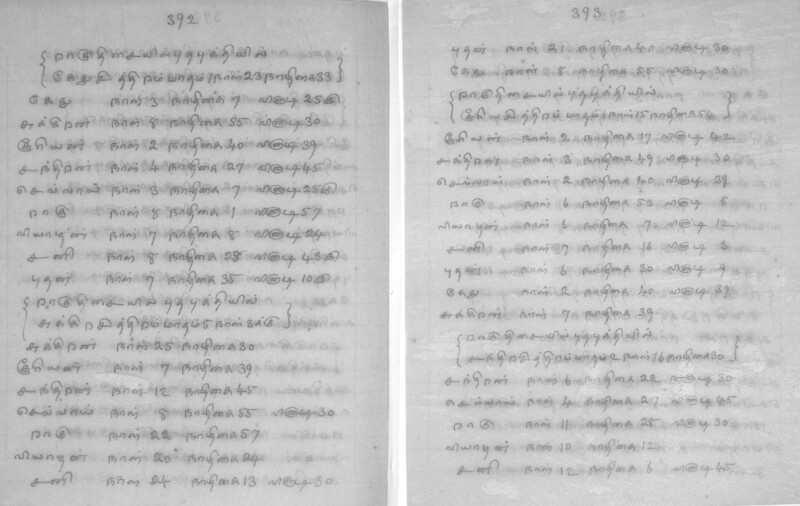 392
ராகுதிசையில் புதபுத்தியில்
கேது சித்திரம் மாதம் 1 நாள் 23 நாழிகை 33
கேது நாள் 3 நாழிகை 7 வினாடி 25
சுக்கிரன் நாள் 8 நாழிகை 55 வினாடி 30
சூரியன் நாள் 2 நாழிகை 40 வினாடி 39
சந்திரன் நாள் 4 நாழிகை 27 வினாடி 45
செவ்வாய் நாள் 3 நாழிகை 7 வினாடி 25
ராகு நாள் 8 நாழிகை 1 வினாடி 57
வியாழன் நாள் 7 நாழிகை 8 வினாடி 24
சனி நாள் 8 நாழிகை 28 வினாடி 43
புதன் நாள் 7 நாழிகை 35 வினாடி 10
ராகுதிசையில் புதபுத்தியில்
சுக்கிர சித்திரம் மாதம் 5 நாள் 3
சுக்கிரன் நாள் 25 நாழிகை 30
சூரியன் நாள் 7 நாழிகை 39
சந்திரன் நாள் 12 நாழிகை 45
செவ்வாய் நாள் 8 நாழிகை 55 வினாடி 30
ராகு நாள் 22 நாழிகை 57
வியாழன் நாள் 20 நாழிகை 24
சனி நாள் 24 நாழிகை 13 வினாடி 30
393
புதன் நாள் 21 நாழிகை 40 வினாடி 30
கேது நாள் 8 நாழிகை 55 வினாடி 30
ராகுதிசையில் புதபுத்தியில்
சூரிய சித்திரம் மாதம் 1 நாள் 15 நாழிகை 54
சூரியன் நாள் 2 நாழிகை 17 வினாடி 42
சந்திரன் நாள் 3 நாழிகை 49 வினாடி 30
செவ்வாய் நாள் 2 நாழிகை 40 வினாடி 39
ராகு நாள் 6 நாழிகை 53 வினாடி 6
வியாழன் நாள் 6 நாழிகை 7 வினாடி 12
சனி நாள் 7 நாழிகை 16 வினாடி 3
புதன் நாள் 6 நாழிகை 30 வினாடி 9
கேது நாள் 2 நாழிகை 40 வினாடி 39
சுக்கிரன் நாள் 7 நாழிகை 39
ராகுதிசையில் புதபுத்தியில்
சந்திர சித்திரம் மாதம் 2 நாள் 16 நாழிகை 30
சந்திரன் நாள் 6 நாழிகை 22 வினாடி 30
செவ்வாய் நாள் 4 நாழிகை 27 வினாடி 45
ராகு நாள் 11 நாழிகை 28 வினாடி 30
வியாழன் நாள் 10 நாழிகை 12
சனி நாள் 12 நாழிகை 6 வினாடி 45